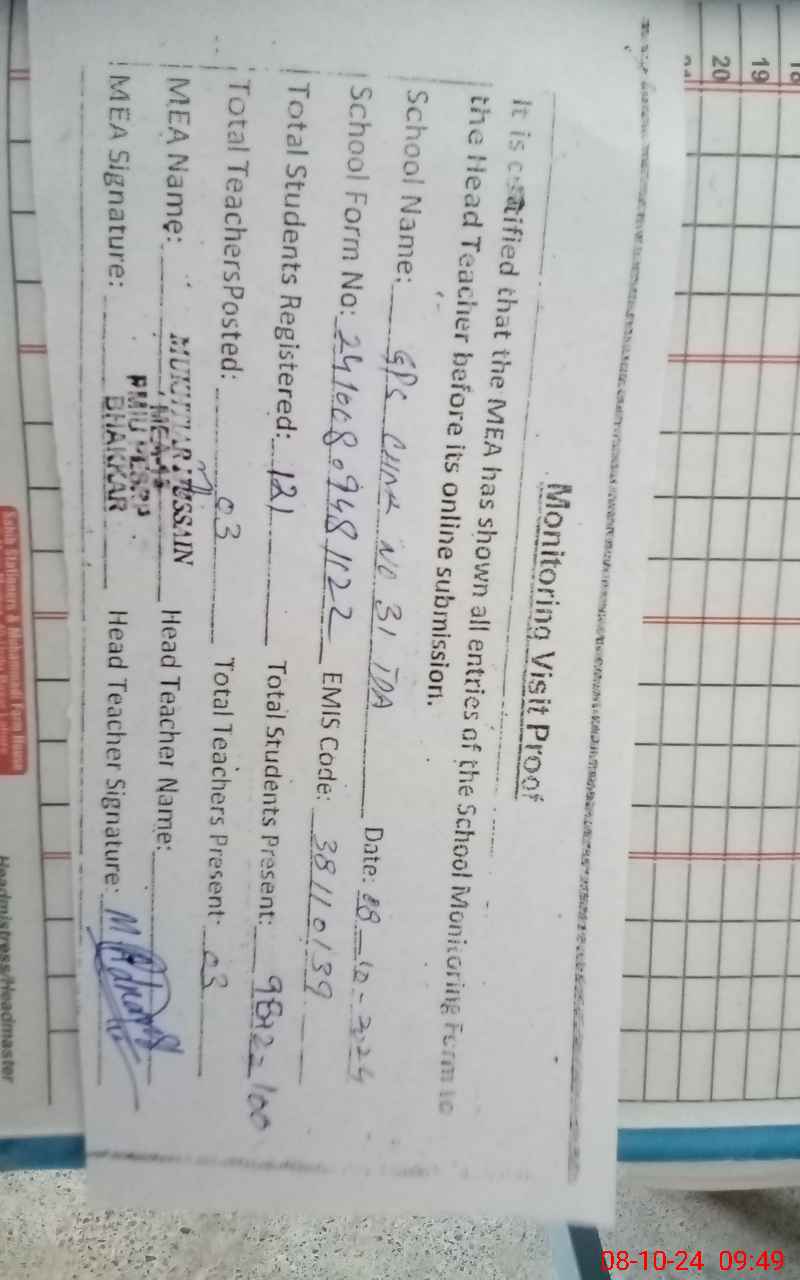 Monitoring Visit Proof
It is certified that the MEA has shown all entries of the School Monitoring Form to
the Head Teacher before its online submission.
School Name: GPS CHAK NO 31 TDA Date: 08-10-2024
School Form No: 2410080948 1122 EMIS Code: 38110139
Total Students Registered: 121 Total Students Present: 98+2=100
Total TeachersPosted: 03 Total Teachers Present: 03
MEA Name: MUKHTIAR HUSSAIN Head Teacher Name:
MEA Signature: BHAKKAR Head Teacher Signature:
18
19
20
21
Sahib Stationers & Muhammadi Form House
Headmistress/Headmaster
08-10-24 09:49